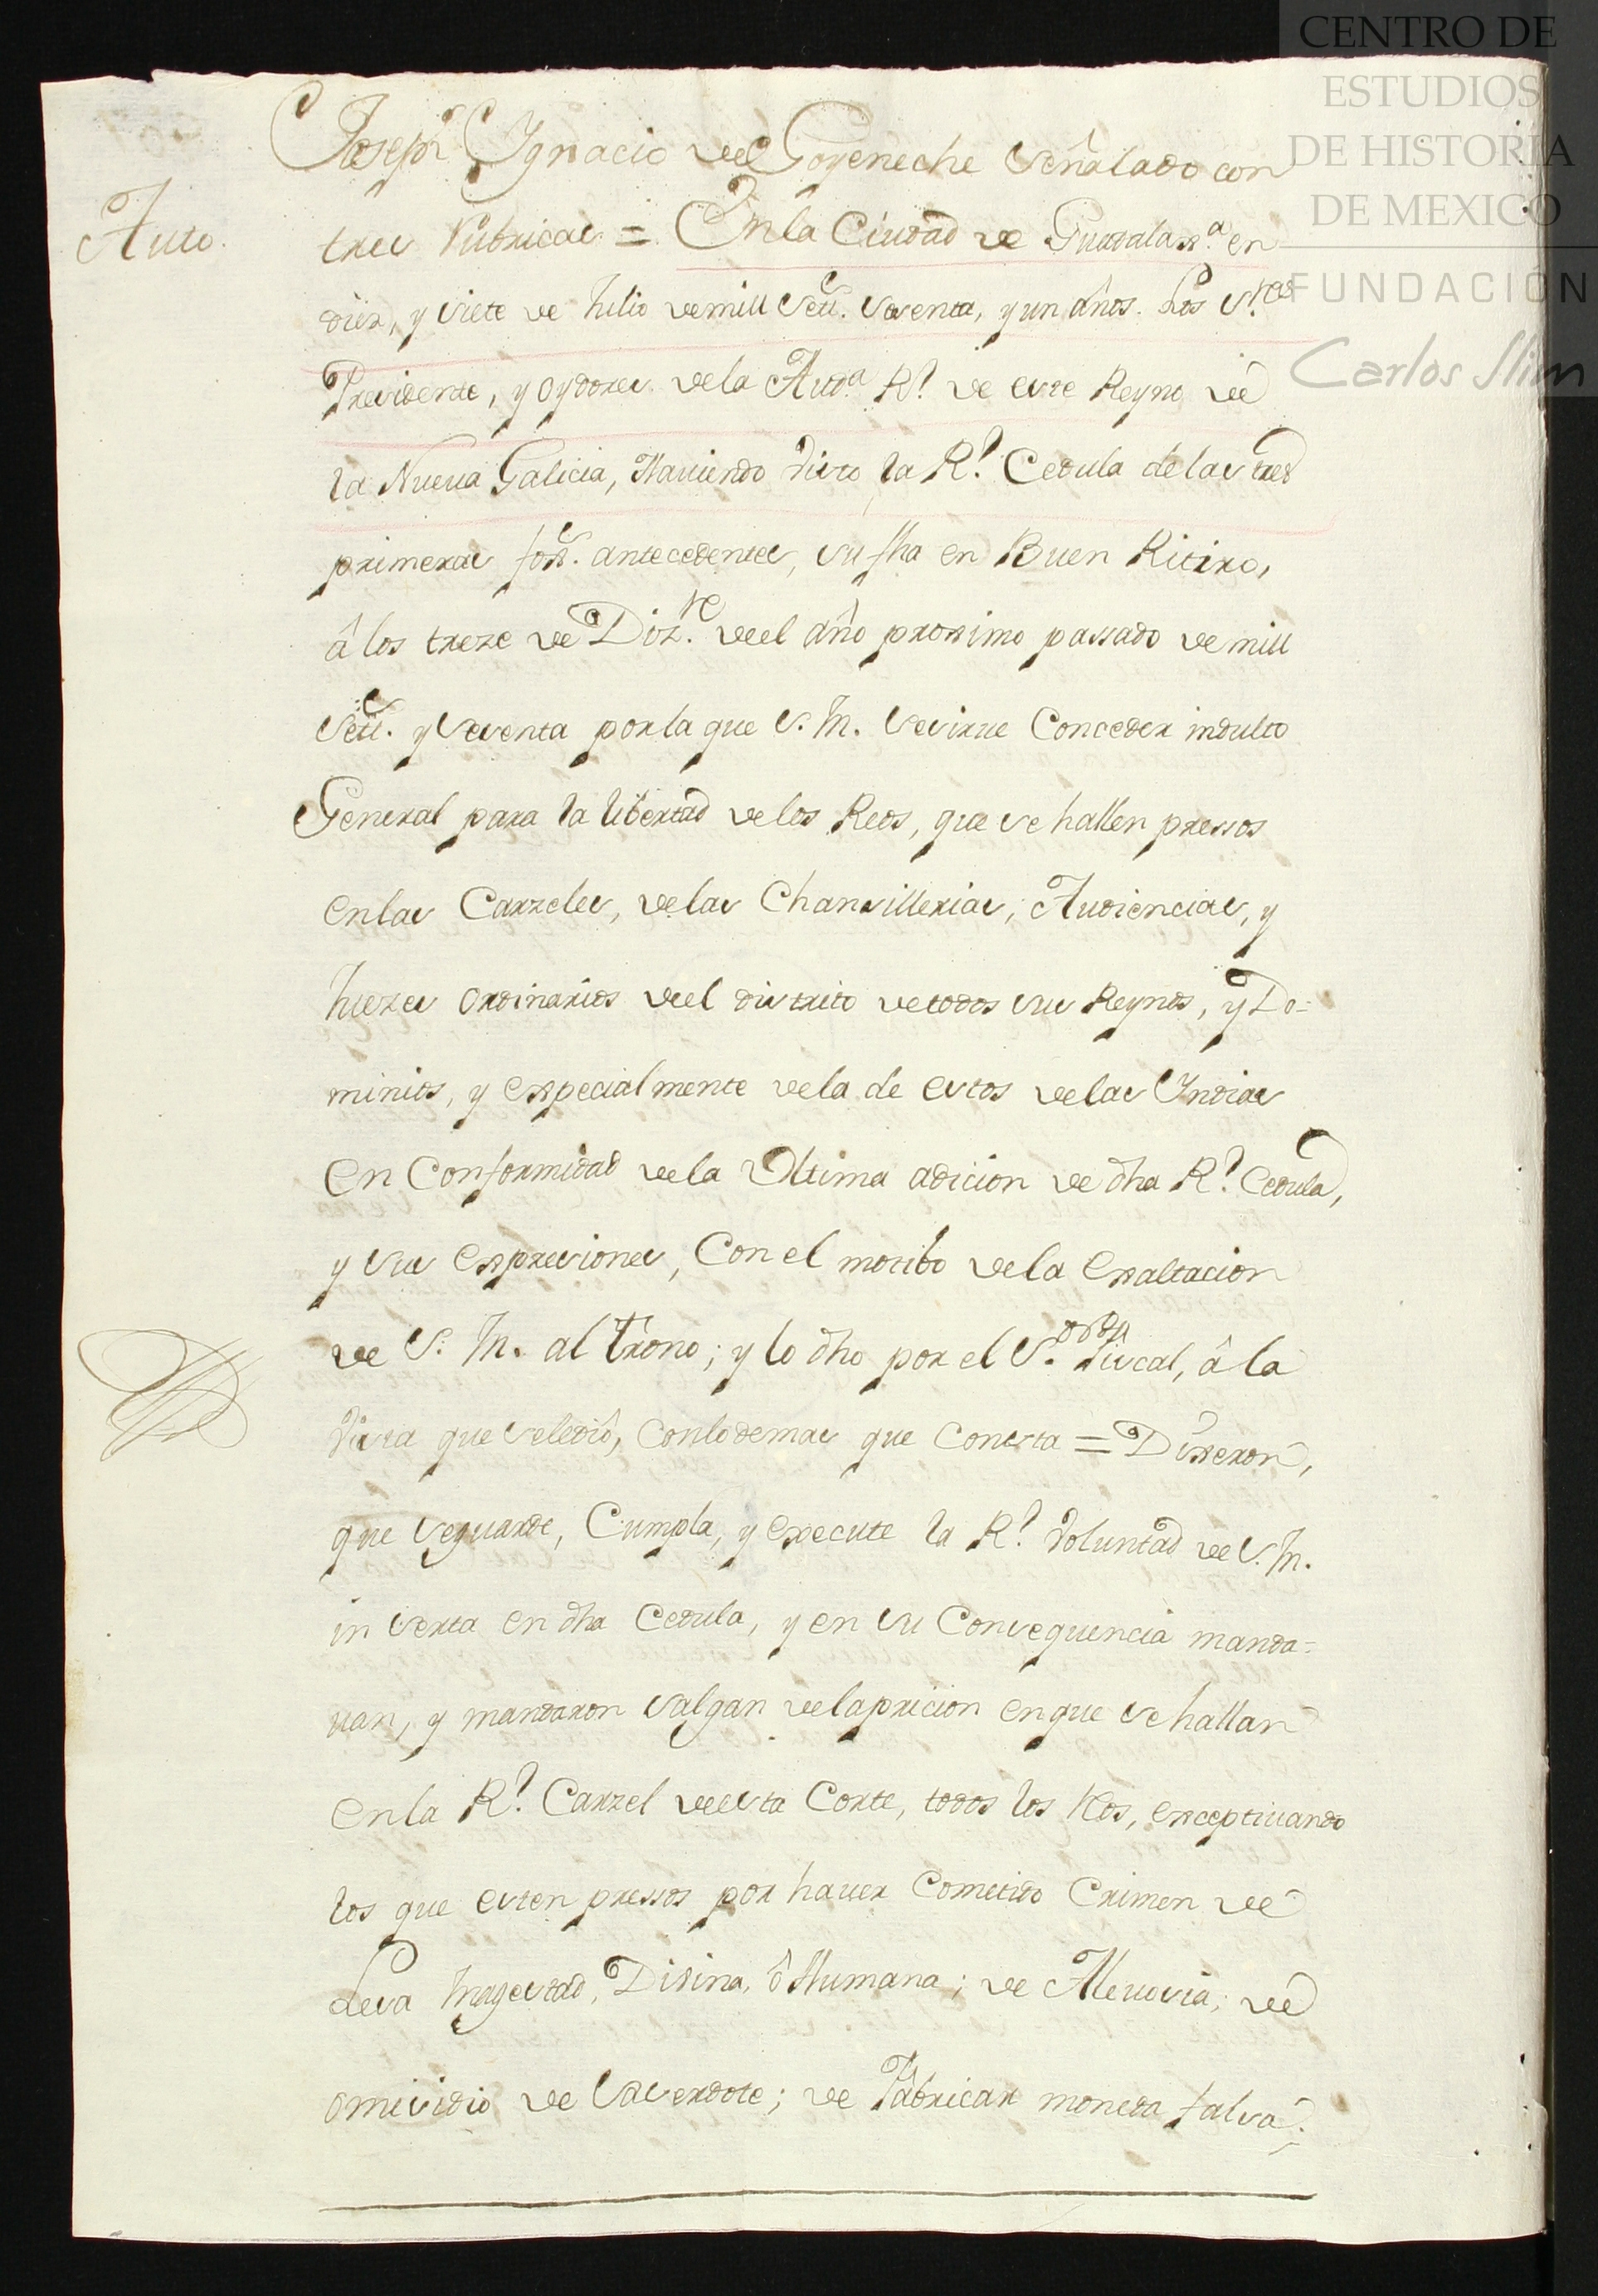 CENTRO DE
ESTUDIOS
DE HISTORIA
DE MEXICO
FUNDACIÓN
Carlos Slim
Auto.
Joseph Ygnacio de Goyeneche señalado con
tres rubricas = En la Ciudad de Guadalax.ª en
diez, y siete de Julio de mill set.s sesenta, y un años. Los S.res
Presidente, y oydores de la Aud.ª R.l de este Reyno de
la Nueva Galicia, Haviendo visto la R.l Cedula de las tres
primeras fox.s antecedentes, su fha en Buen Ritiro,
â los treze de Diz.re de el año proximo passado de mill
set.s y sesenta por la que S. M. se sirve Conceder indulto
General para la libertad de los Reos, que se hallen pressos
en las Carzeles, de las Chansillerias, Audiencias, y
Juezes ordinarios de el distrito de todos sus Reynos, y Do=
minios, y expecialmente de la de estos de las Yndias
en Conformidad de la Ultima adicion de dha R.l Cedula,
y sus expreciones, Con el motibo de la exaltacion
de S. M. al trono; y lo dho por el S.or Fiscal, â la
vista que se le diô, con lo demas que Consta = Dixeron,
que se guarde, Cumpla, y execute la R.l Voluntad de S. M.
inserta en dha Cedula, y en su Consequencia manda=
uan, y mandaron salgan de la pricion en que se hallan
en la R.l Carzel de esta Corte, todos los Reos, exceptiuando
los que esten pressos por hauer Cometido Crimen de
Lesa Magestad, Divina, ô Humana; de Alevosia; de
omisidio de Saserdote; de Fabricar moneda falsa;